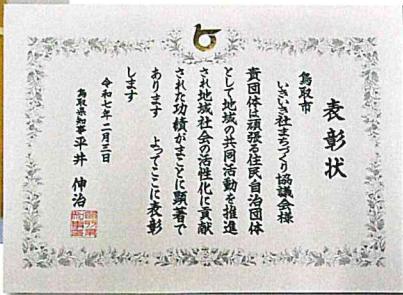 表彰状
鳥取市
いきいき社まちづくり協議会様
貴団体は頑張る住民自治団体
として地域の共同活動を推進
され地域社会の活性化に貢献
された功績がまことに顕著で
あります よってここに表彰
します
令和七年二月三日
鳥取県知事 平井 伸治